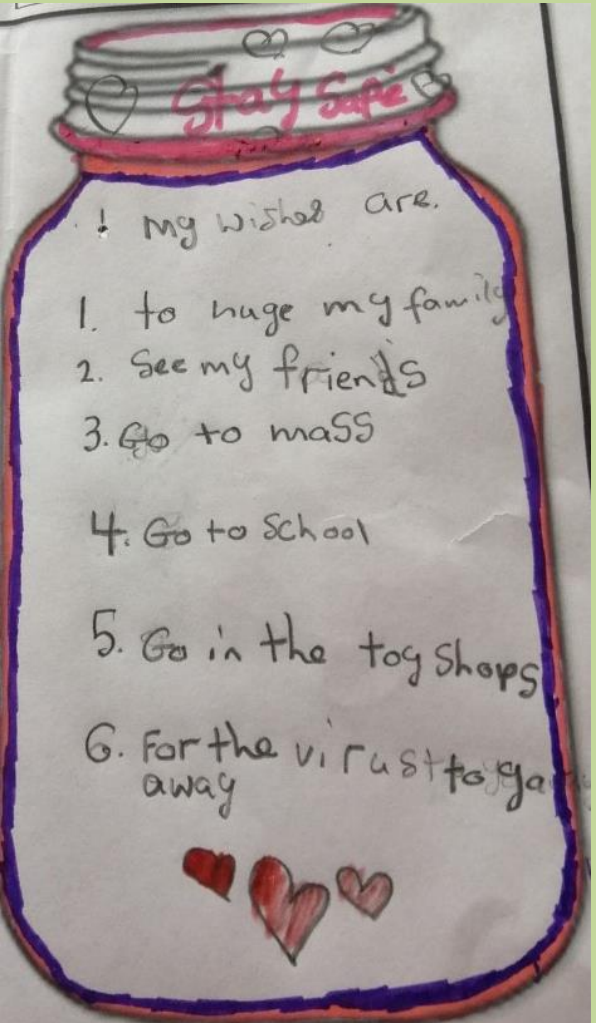 Stay Safe
! my wishes are.
1. to huge my family
2. See my friends
3. Go to mass
4. Go to School
5. Go in the toy Shops
6. For the virus to go
away